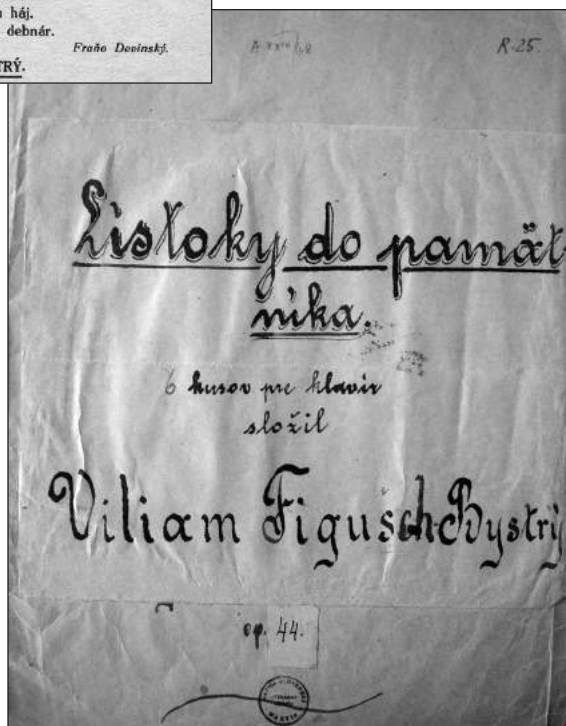 háj.
debnár.
Fraňo Devinský.
TRÝ.
R-25.
Listoky do pamät
nika.
6 kusov pre klavír
složil
Viliam Figušch-Bystrý
op. 44.
MARTIN